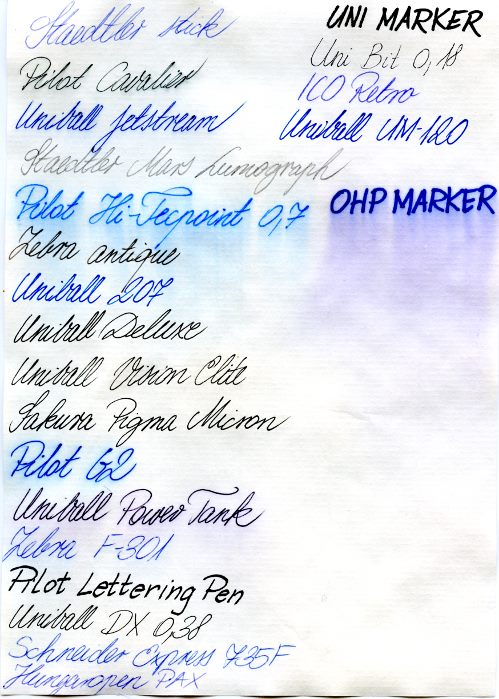 Staedtler stick
Pilot Cavalier
Uniball Jetstream
Staedtler Mars Lumograph
Pilot Hi-Tecpoint 0,7
Zebra antique
Uniball 207
Uniball Deluxe
Uniball Vision Elite
Sakura Pigma Micron
Pilot G2
Uniball Power Tank
Zebra F-301
Pilot Lettering Pen
Uniball DX 0,38
Schneider Express 735F
Hungaropen PAX
UNI MARKER
Uni Bit 0,18
ICO Retro
Uniball UM-120
OHP MARKER